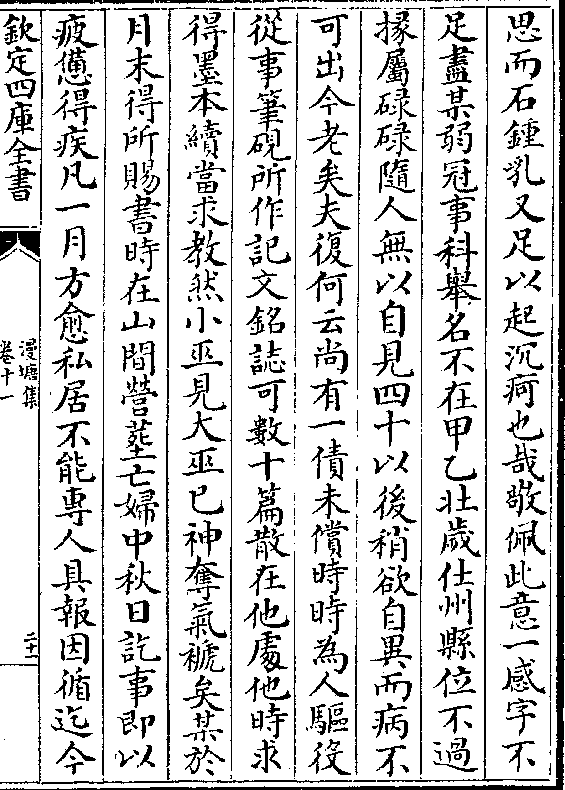 思而石鍾乳又足以起沉痾也哉敬佩此意一感字不
足盡某弱冠事科舉名不在甲乙壯歲仕州縣位不過
掾屬碌碌隨人無以自見四十以後稍欲自異而病不
可出今老矣夫復何云尚有一債未償時時為人驅役
從事筆硯所作記文銘誌可數十篇散在他處他時求
得墨本續當求教然小巫見大巫已神奪氣褫矣某於
月末得所賜書時在山間營塟亡婦中秋日訖事即以
疲憊得疾凡一月方愈私居不能專人具報因循迄今
欽定四庫全書
漫塘集
卷十一
二十一